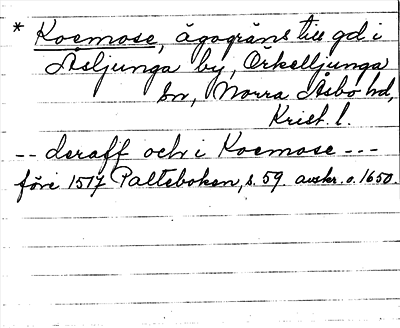 * Kosmose, ägogräns till gd i
Åsljunga by, Örkelljunga
sn, Norra Åsbo hd,
Krist. l.
-- deraff och i Kosmose ---
före 1517 Palteboken, s. 59. avskr. o. 1650.